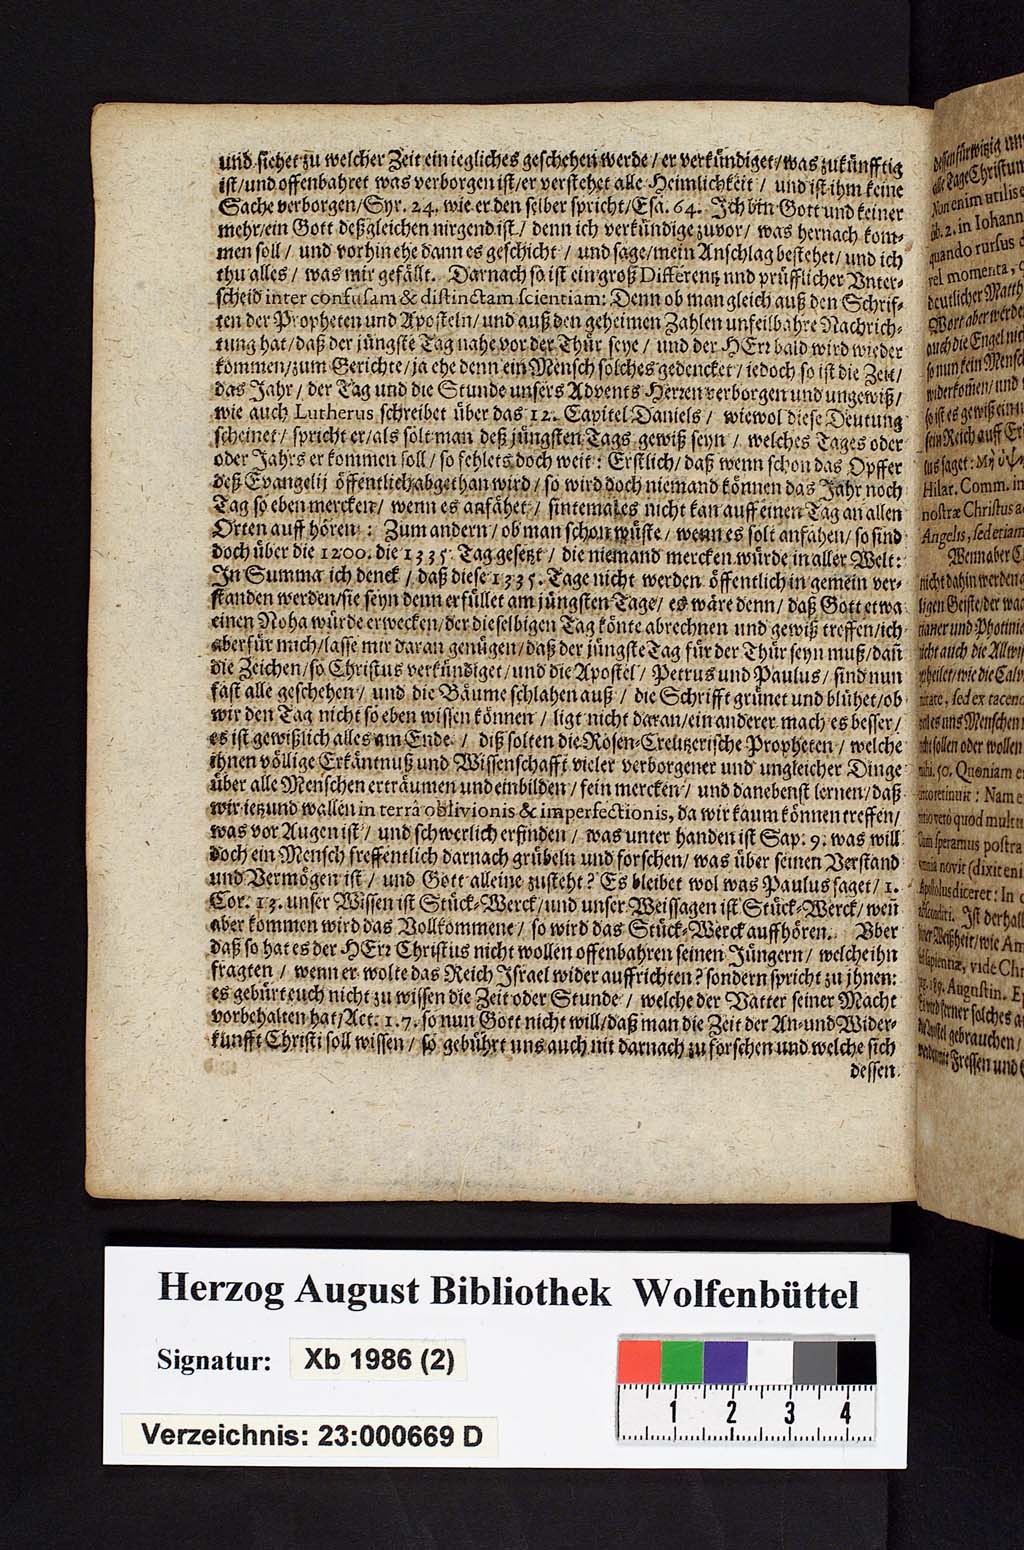 und siehet zu welcher Zeit ein iegliches geschehen werde / er verkündiget / was zukünfftig
ist / und offenbahret was verborgen ist / er verstehet alle Heimlichkeit / und ist ihm keine
Sache verborgen / Syr. 24. wie er den selber spricht / Esa. 64. Ich bin Gott und keiner
mehr / ein Gott deßgleichen nirgend ist / denn ich verkündige zuvor / was hernach kom-
men soll / und vorhin ehe dann es geschicht / und sage / mein Anschlag bestehet / und ich
thu alles / was mir gefällt. Darnach so ist ein groß Differentz und prüfflicher Unter-
scheid inter confusam & distinctam scientiam: Denn ob man gleich auß den Schrif-
ten der Propheten und Aposteln / und auß den geheimen Zahlen unfeilbahre Nachrich-
tung hat / daß der jüngste Tag nahe vor der Thür seye / und der HErr bald wird wieder
kommen / zum Gerichte / ja ehe denn ein Mensch solches gedencket / iedoch so ist die Zeit /
das Jahr / der Tag und die Stunde unsers Advents Herren verborgen und ungewiß /
wie auch Lutherus schreibet über das 12. Capitel Daniels / wiewol diese Deutung
scheinet / spricht er / als solt man deß jüngsten Tags gewiß seyn / welches Tages oder
oder Jahrs er kommen soll / so fehlets doch weit: Erstlich / daß wenn schon das Opffer
deß Evangelij öffentlich abgethan wird / so wird doch niemand können das Jahr noch
Tag so eben mercken / wenn es anfähet / sintemal es nicht kan auff einen Tag an allen
Orten auff hören: Zum andern / ob man schon wüste / wenn es solt anfahen / so sind
doch über die 1200. die 1335. Tag gesetzt / die niemand mercken würde in aller Welt:
In Summa ich denck / daß diese 1335. Tage nicht werden öffentlich in gemein ver-
standen werden / sie seyn denn erfüllet am jüngsten Tage / es wäre denn / daß Gott etwa
einen Noha würde erwecken / der dieselbigen Tag könte abrechnen und gewiß treffen / ich
aber für mich / lasse mir daran genügen / daß der jüngste Tag für der Thür seyn muß / dañ
die Zeichen / so Christus verkündiget / und die Apostel / Petrus und Paulus / sind nun
fast alle geschehen / und die Bäume schlahen auß / die Schrifft grünet und blühet / ob
wir den Tag nicht so eben wissen können / ligt nicht daran / ein anderer mach es besser /
es ist gewißlich alles am Ende / diß solten die Rosen-Creützerische Propheten / welche
ihnen völlige Erkäntnuß und Wissenschafft vieler verborgener und ungleicher Dinge
über alle Menschen erträumen und einbilden / fein mercken / und danebenst lernen / daß
wir ietzund wallen in terrâ oblivionis & imperfectionis, da wir kaum können treffen /
was vor Augen ist / und schwerlich erfinden / was unter handen ist Sap. 9. was will
doch ein Mensch freffentlich darnach grübeln und forschen / was über seinen Verstand
und Vermögen ist / und Gott alleine zusteht? Es bleibet wol was Paulus saget / 1.
Cor. 13. unser Wissen ist Stück-Werck / und unser Weissagen ist Stück-Werck / weñ
aber kommen wird das Vollkommene / so wird das Stück-Werck auffhören. Vber
daß so hat es der HErr Christus nicht wollen offenbahren seinen Jüngern / welche ihn
fragten / wenn er wolte das Reich Israel wider auffrichten? sondern spricht zu jhnen:
es gebürt euch nicht zu wissen die Zeit oder Stunde / welche der Vatter seiner Macht
vorbehalten hat / Act. 1. 7. so nun Gott nicht will / daß man die Zeit der An- und Wider-
kunfft Christi soll wissen / so gebührt uns auch nit darnach zu forschen und welche sich
dessen
dessen fürwitzig
alle Tage Christum
Non enim utilis
lib. 2. in Iohann
quando rursus
vel momenta,
deutlicher Matth
Wort aber werde
auch die Engel nic
so nun kein Mensch
widerkom̃en / und
so ist es gewiß ein
sein Reich auff
tus saget:
Hilar. Comm. in
nostræ Christus
Angelis, sed etiam
Wenn aber
nicht dahin werden
ligen Geiste / der
rianer und Photinia
nicht auch die Allwis
wie die Calv
sed ex
uns Menschen
sollen oder wollen
50. Quoniam
Nam
quod multu
speramus postra
novit (dixit eni
diceret: In
Ist derhalb
Weißheit / wie Am
sapientiæ, vide Chr
Augustin.
ferner solches
gebrauchen /
Fressen und
Herzog August Bibliothek Wolfenbüttel
Signatur: Xb 1986 (2)
1 2 3 4
Verzeichnis: 23:000669 D